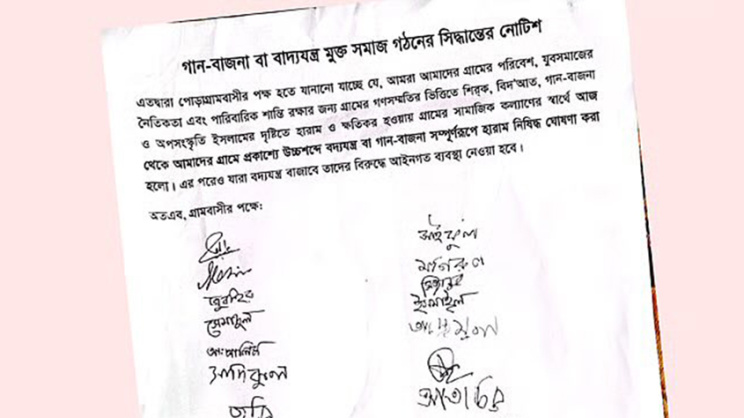 গান-বাজনা বা বাদ্যযন্ত্র মুক্ত সমাজ গঠনের সিদ্ধান্তের নোটিশ
এতদ্বারা পোড়াগ্রামবাসীর পক্ষ হতে যানানো যাচ্ছে যে, আমরা আমাদের গ্রামের পরিবেশ, যুবসমাজের
নৈতিকতা এবং পারিবারিক শান্তি রক্ষার জন্য গ্রামের গণসম্মতির ভিত্তিতে শিরক, বিদ'আত, গান-বাজনা
ও অপসংকৃতি ইসলামের দৃষ্টিতে হারাম ও ক্ষতিকর হওয়ায় গ্রামের সামাজিক কল্যাণের স্বার্থে আজ
থেকে আমাদের গ্রামে প্রকাশ্যে উচ্চশব্দে বদ্যযন্ত্র বা গান-বাজনা সম্পূর্ণরূপে হারাম নিষিদ্ধ ঘোষণা করা
হলো। এর পরেও যারা বদ্যযন্ত্র বাজাবে তাদের বিরুদ্ধে আইনগত ব্যবস্থা নেওয়া হবে।
অতএব, গ্রামবাসীর পক্ষে:
মনিরুল
ইসমাইল